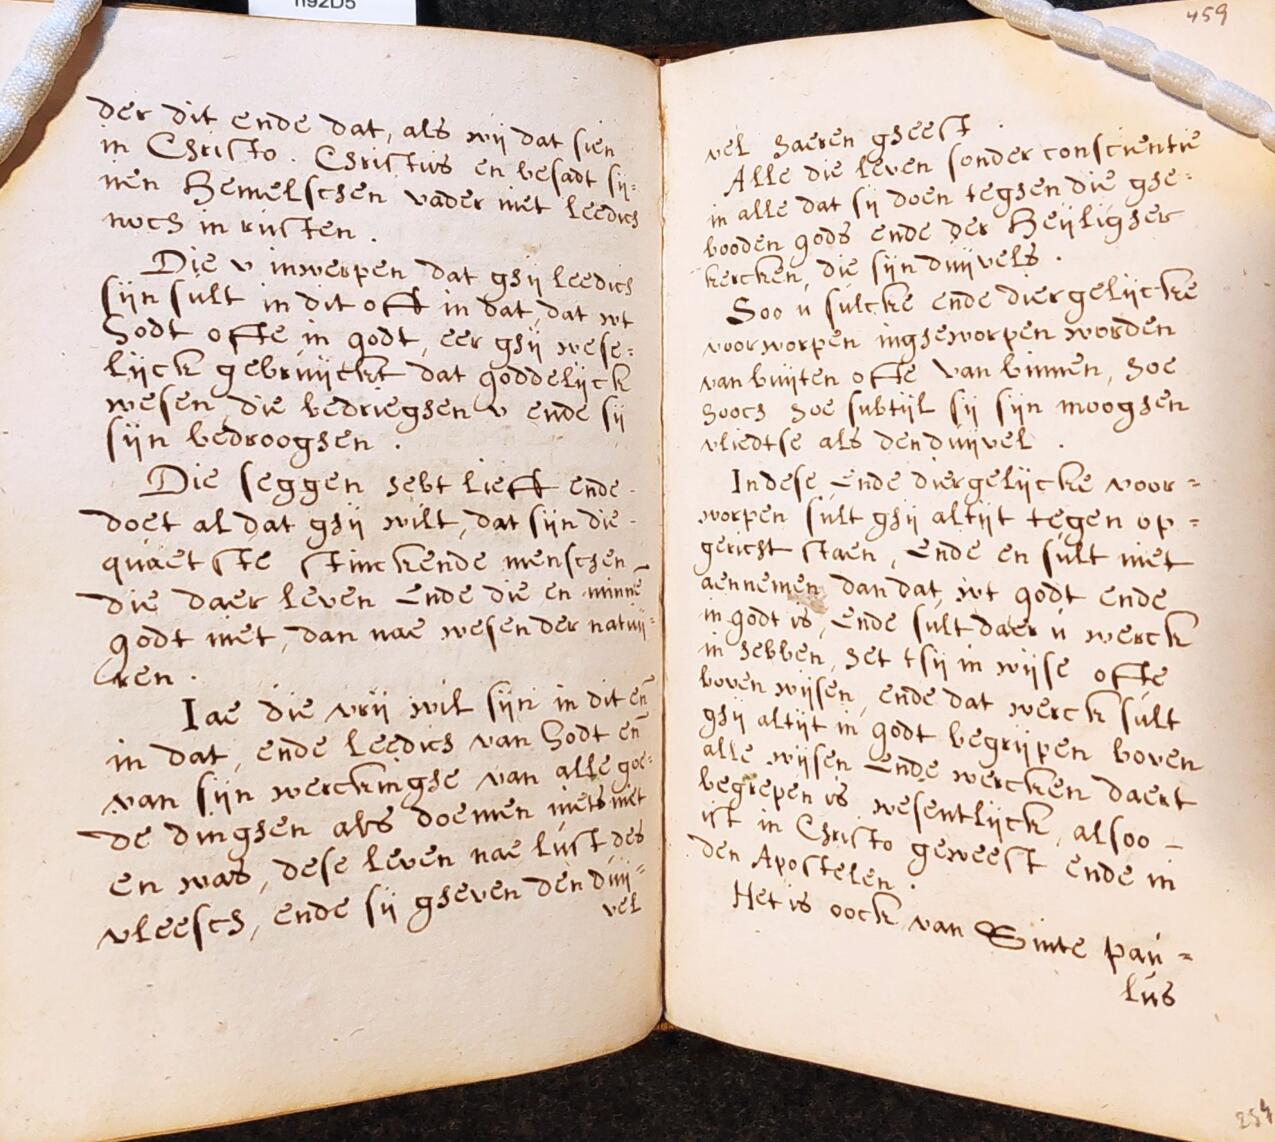 h92D5
der dit ende dat, als wij dat sien
in Christo. Christus en besadt sij=
nen Hemelschen vader niet leedich
noch in rusten.
Die v inwerpen dat ghij leedich
sijn sult in dit oft in dat, dat wt
Godt ofte in godt, eer ghij wese=
lijck gebruijckt dat goddelijck
wesen, die bedrieghen v ende sij
sijn bedrooghen.
Die seggen hebt lieff ende
doet al dat ghij wilt, dat sijn die
quaetste stinckende menschen
die daer leven Ende die en minnē
godt niet, dan nae wesen der natuij=
ren.
Iae die vrij wil sijn in dit eñ
in dat, ende leedich van Godt eñ
van sijn werckinghe van alle goe=
de dinghen als doemen niets niet
en was, dese leven nae lust des
vleesch, ende sij gheven den duij=
vel
459
vel haeren gheest.
Alle die leven sonder conscientie
in alle dat sij doen teghen die ghe=
booden gods ende der Heijligher
kercken, die sijn duijvels.
Soo u sulcke ende diergelijcke
voorworpen ingheworpen worden
van buijten ofte van binnen, hoe
hooch hoe subtijl sij sijn mooghen
vliedtse als den duijvel.
In dese Ende diergelijcke voor=
worpen sult ghij altijt tegen op=
gericht staen, Ende en sult niet
aennemen dan dat, wt godt ende
in godt is, Ende sult daer u werck
in hebben, het tsij in wijse ofte
boven wijsen, ende dat werck sult
ghij altijt in godt begrijpen boven
alle wijsen Ende wercken daert
begrepen is wesentlijck, alsoo –
ist in Christo geweest ende in
den Apostelen.
Het is oock van Sinte pau=
lus
254